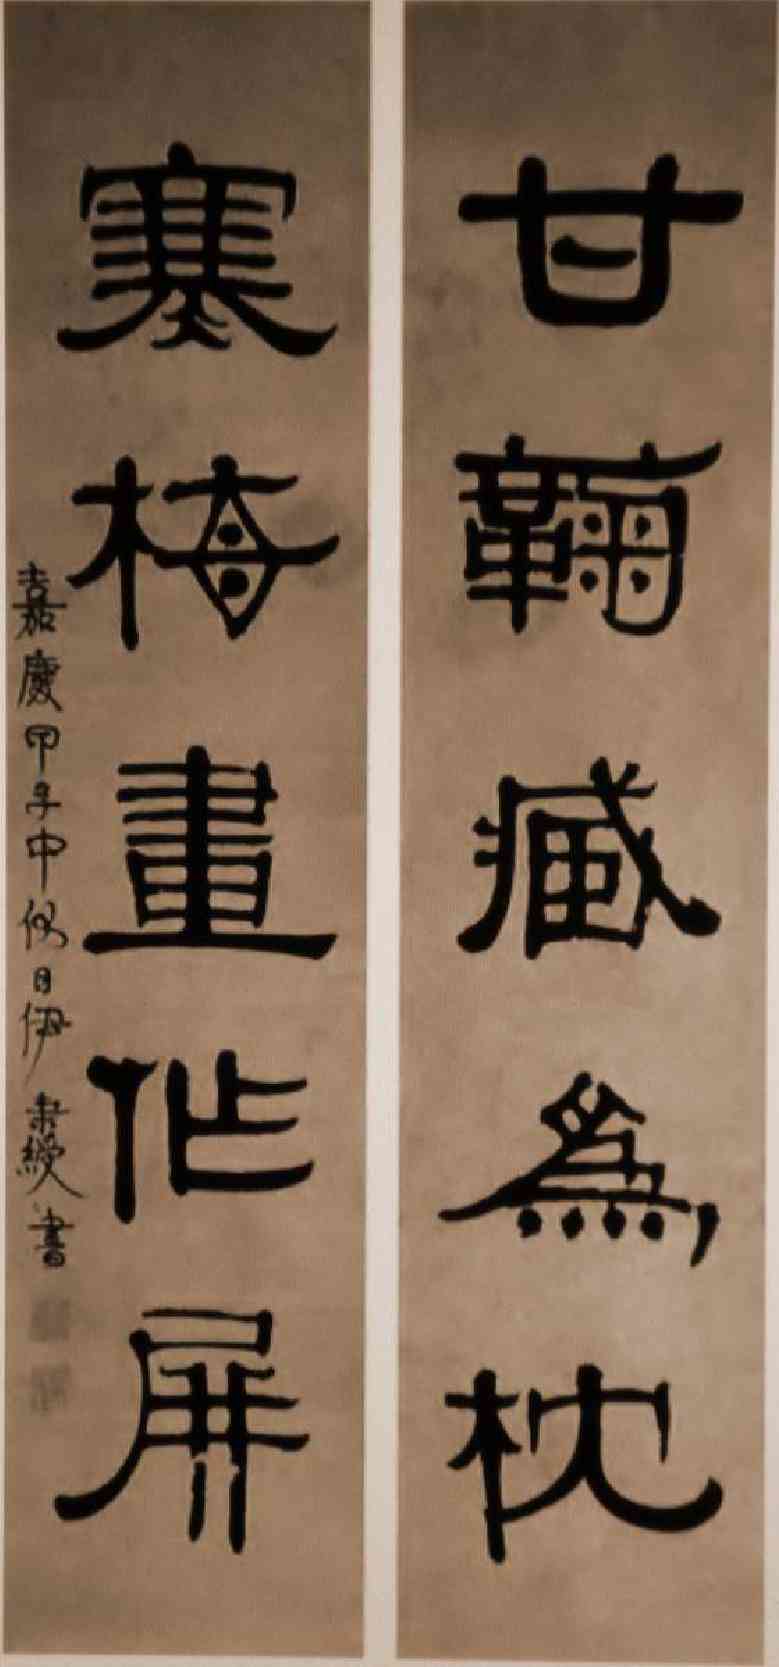 甘鞠臧為枕
寒梅畫作屏
嘉慶甲子中秋日伊秉綬書